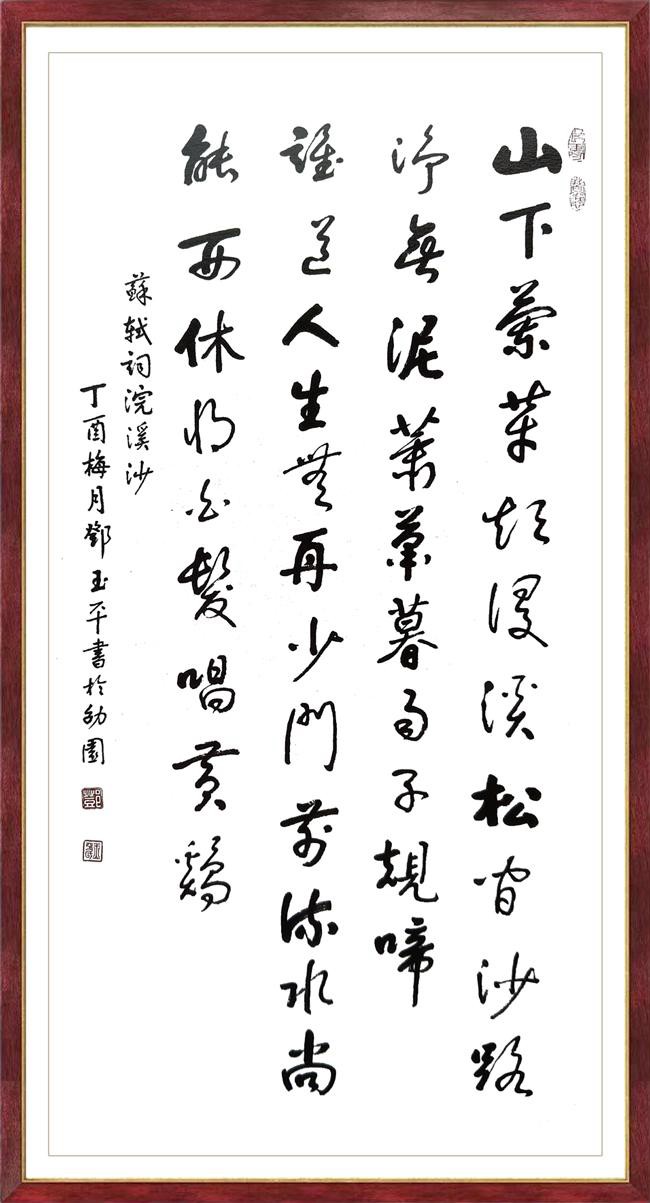 山下蘭芽短浸溪松間沙路
淨無泥蕭蕭暮雨子規啼
誰道人生無再少門前流水尚
能西休將白髮唱黃鷄
蘇軾詞浣溪沙
丁酉梅月鄧玉平書於幼園